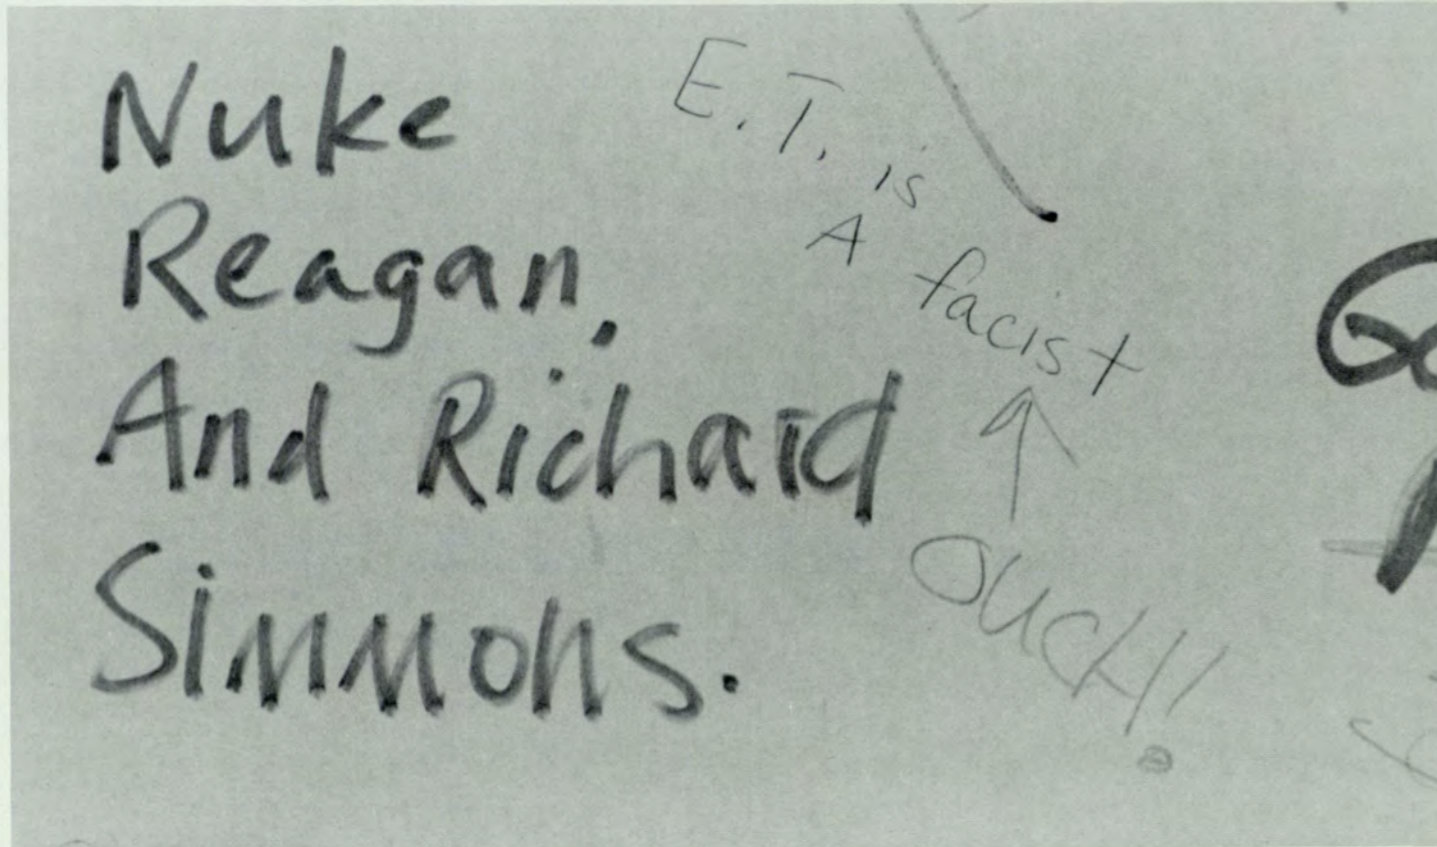 Nuke
Reagan,
And Richard
Simmons.
E.T. is
A facist
OUCH!